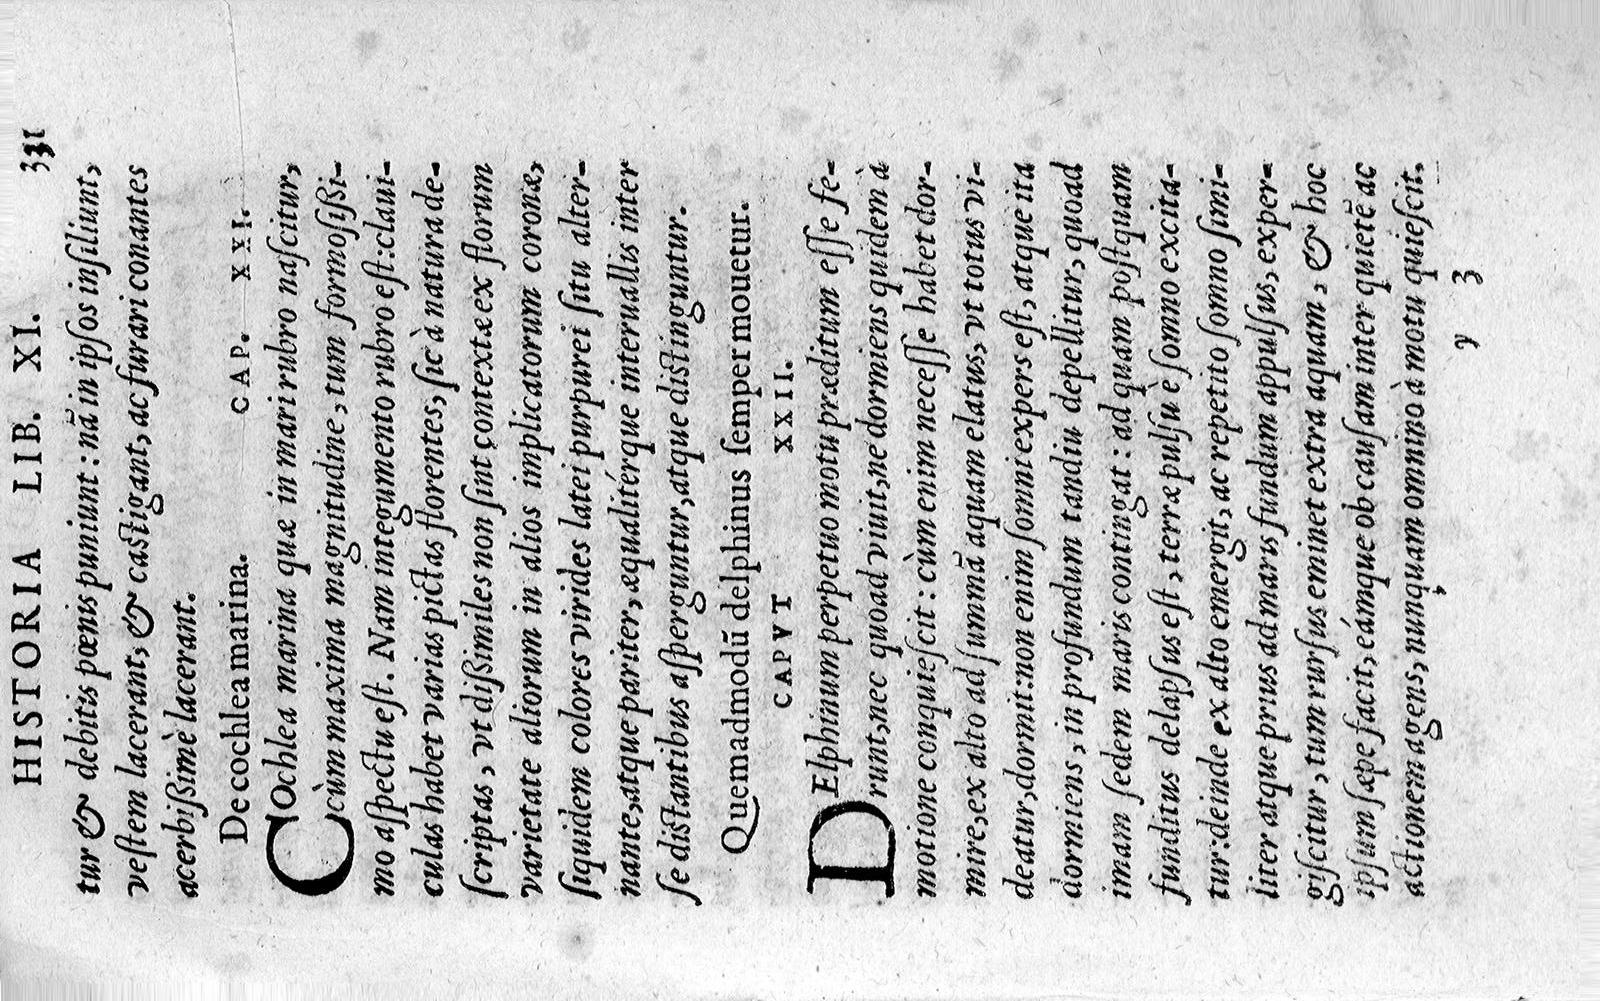 HISTORIA LIB. XI. 331
tur & debitis pœnis puniunt: nā in ipſos inſiliunt,
veſtem lacerant, & caſtigant, ac furari conantes
acerbißimè lacerant.
De cochlea marina. CAP. XXI.
COchlea marina quæ in mari rubro naſcitur,
cùm maxima magnitudine, tum formoſißi-
mo aſpectu eſt. Nam integumento rubro eſt: claui-
culas habet varias pictas florentes, ſic à natura de-
ſcriptas, vt dißimiles non ſint contextæ ex florum
varietate aliorum in alios implicatorum coronæ,
ſiquidem colores virides latei purpurei ſitu alter-
nante, atque pariter, æqualitérque interuallis inter
ſe diſtantibus aſperguntur, atque diſtinguntur.
Quemadmodū delphinus ſemper mouetur.
CAPVT XXII.
DElphinum perpetuo motu præditum eſſe fe-
runt, nec quoad viuit, ne dormiens quidem à
motione conquieſcit: cùm enim neceſſe habet dor-
mire, ex alto ad ſummā aquam elatus, vt totus vi-
deatur, dormit: non enim ſomni expers eſt, atque ita
dormiens, in profundum tandiu depellitur, quoad
imam ſedem maris contingat: ad quam poſtquam
funditus delapſus eſt, terræ pulſu è ſomno excita-
tur: deinde ex alto emergit, ac repetito ſomno ſimi-
liter atque prius ad maris fundum appulſus, exper-
giſcitur, tum rurſus eminet extra aquam, & hoc
ipſum ſæpe facit, eámque ob cauſam inter quietē ac
actionem agens, nunquam omnino à motu quieſcit.
y 3